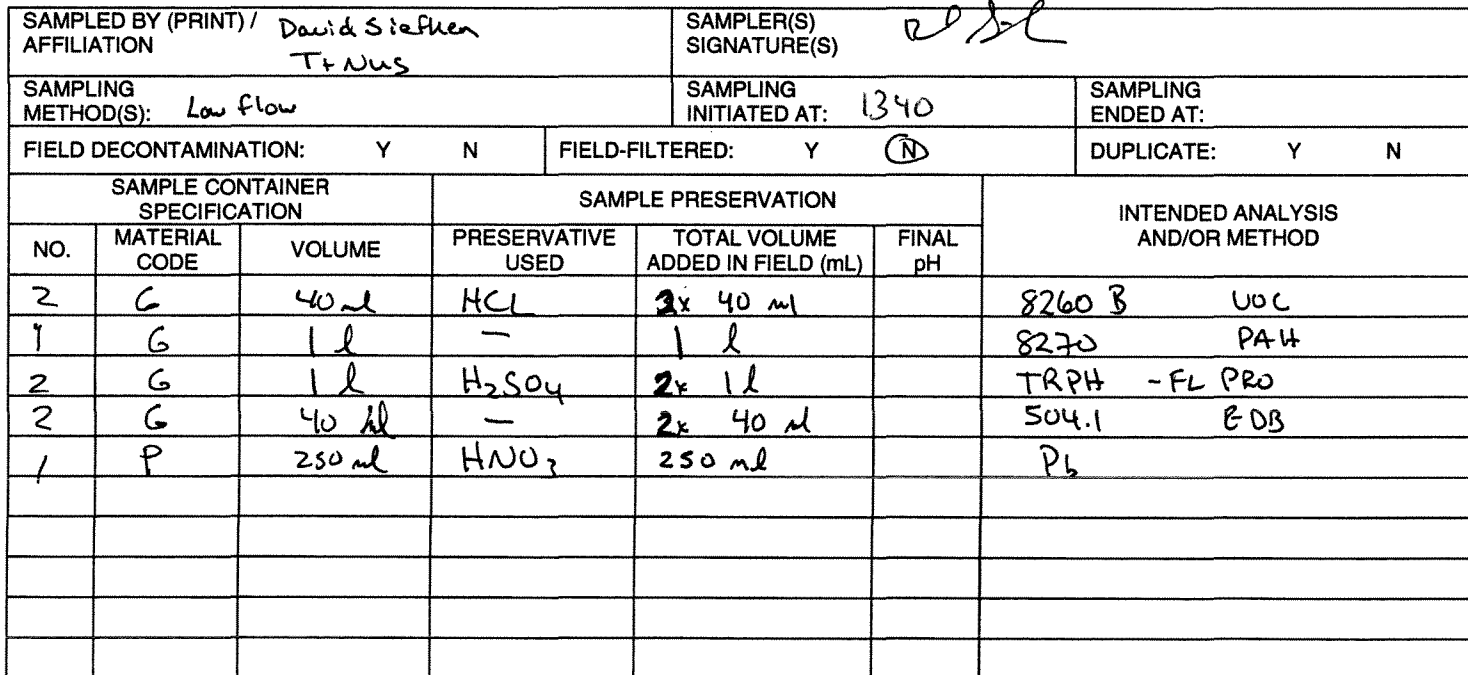 SAMPLED BY (PRINT) / AFFILIATION David Siefken TtNUS SAMPLER(S) SIGNATURE(S)
SAMPLING METHOD(S): Low flow SAMPLING INITIATED AT: 1340 SAMPLING ENDED AT:
FIELD DECONTAMINATION: Y N FIELD-FILTERED: Y N DUPLICATE: Y N
SAMPLE CONTAINER SPECIFICATION SAMPLE PRESERVATION INTENDED ANALYSIS AND/OR METHOD
NO. MATERIAL CODE VOLUME PRESERVATIVE USED TOTAL VOLUME ADDED IN FIELD (mL) FINAL pH
2 G 40 ml HCL 2x 40 ml 8260 B VOC
1 G 1 l — 1 l 8270 PAH
2 G 1 l H2SO4 2x 1 l TRPH - FL PRO
2 G 40 ml — 2x 40 ml 504.1 EDB
1 P 250 ml HNO3 250 ml Pb